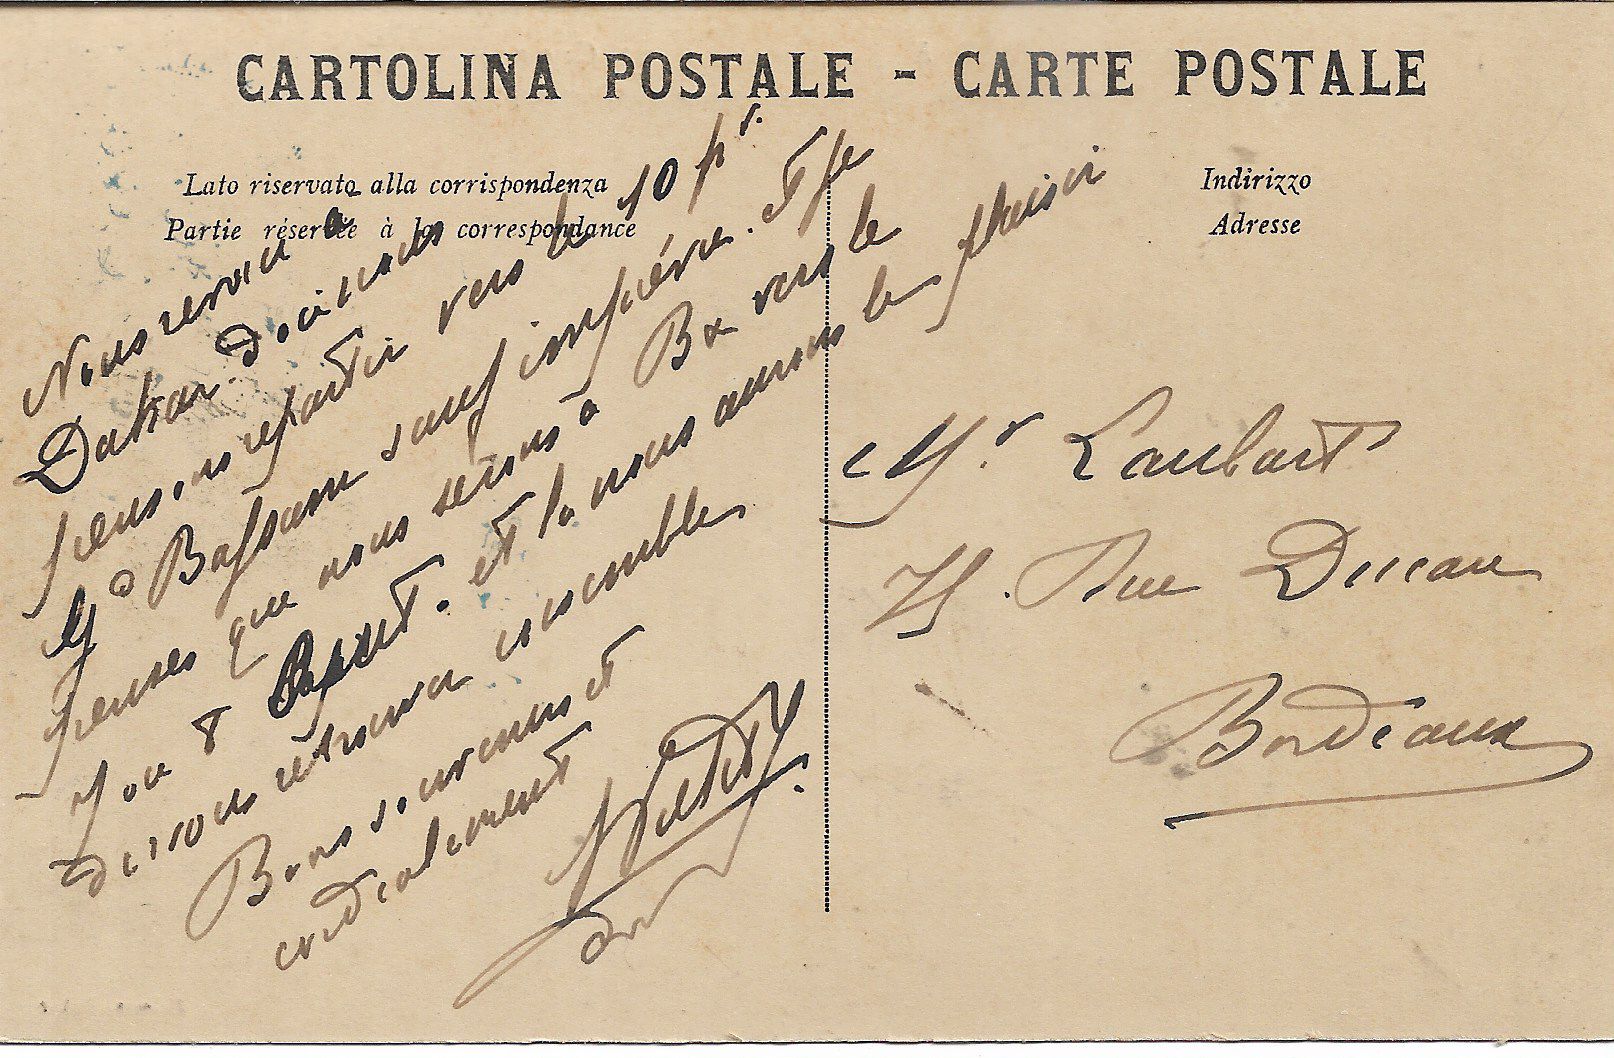 CARTOLINA POSTALE - CARTE POSTALE
Lato riservato alla corrispondenza
Partie réservée à la correspondance
Indirizzo
Adresse
Nous revoici à
Dakar. d'où nous
pensons repartir vers le 10 pr.
Gd Bassam sauf imprévu. Et je
penses que nous serons à Bx vers le
7 ou 8 et là nous aurons le plaisir
de nous retrouver ensemble
Bons souvenirs et
cordialement
Mr Laubart
Rue
Bordeaux